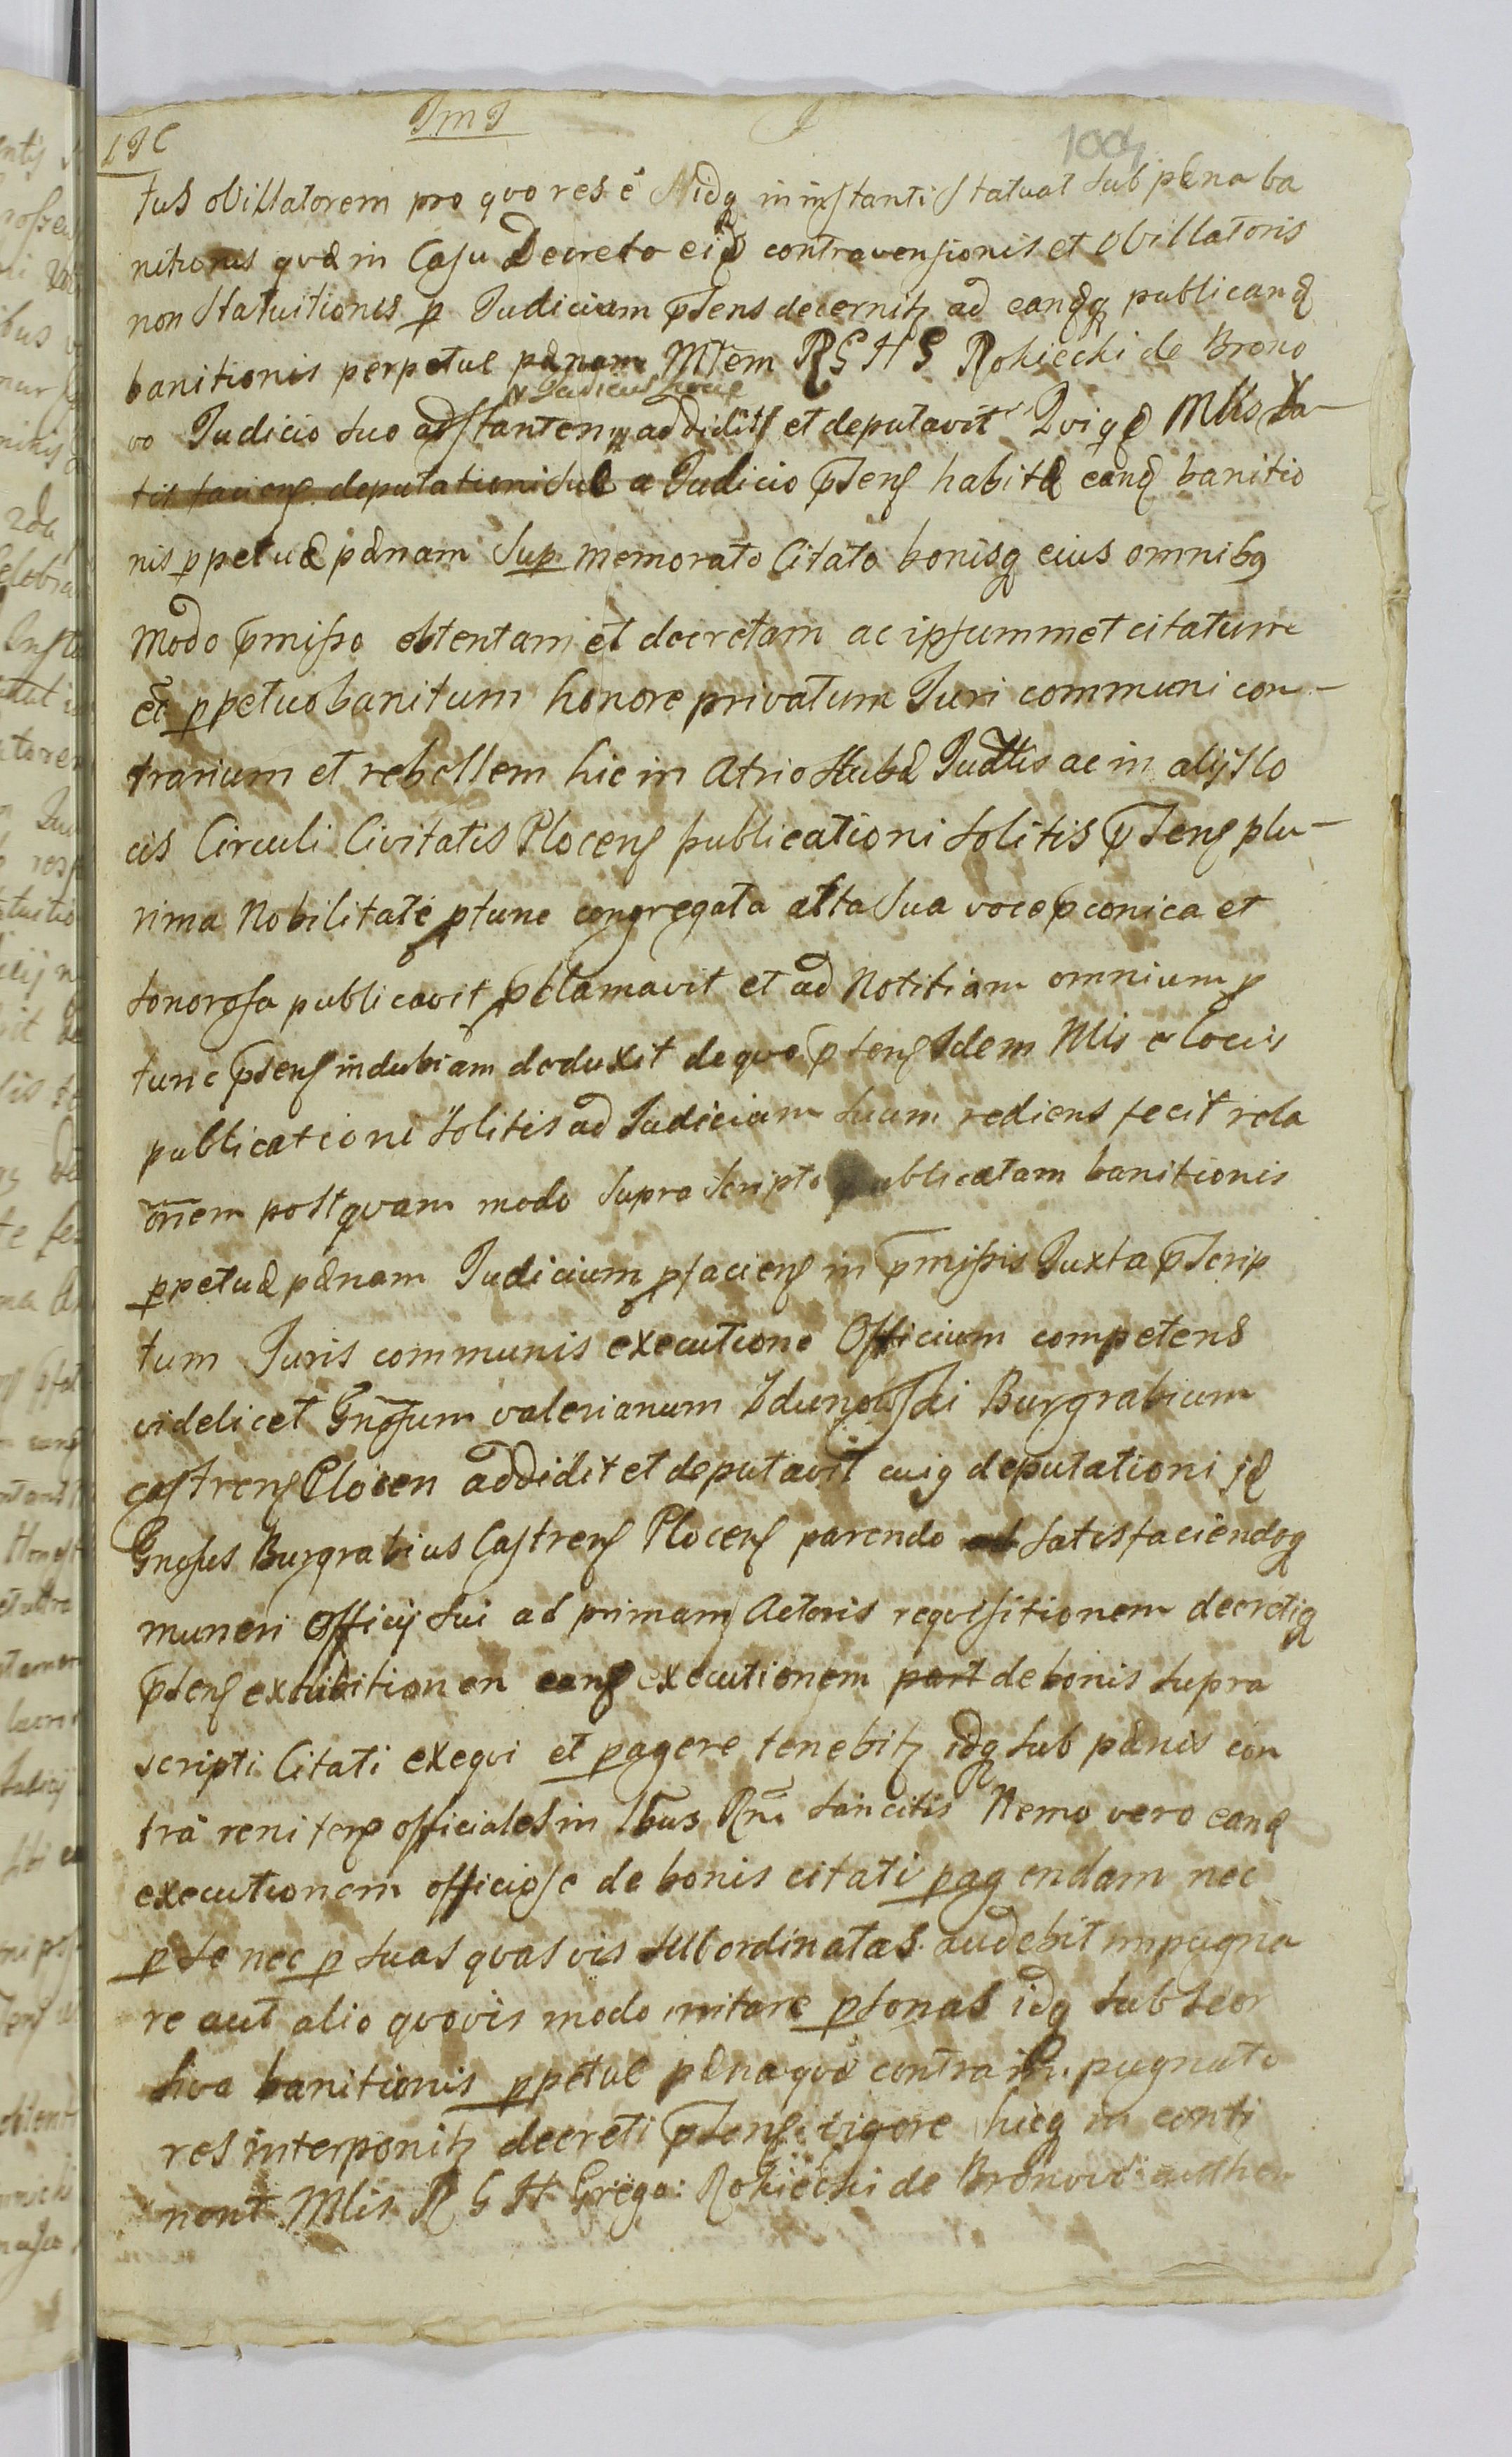 L I C
Im I
100
tus obillatorem pro quo res ē Nidq in instanti statuat sub pęna ba
nitionis quę in Casu Decreto eid contravensionis et obillatoris
non statuitionis p Iudicium p̄sens decernitr ad eandq publicand
banitionis perpetuę pęnam Mtem R G H G Rokiecki de Brono
vo Iudicio suo adstantem addidit et deputavit Quiqd Mlis sa
tis faciens deputationi suę a Iudicio p̄sens habitę eand banitio
nis ppetuę pęnam sup memorato Citato bonisq eius omnibq
modo p̄misso obtentam et decretam ac ipsummet citatum
ēē ppetuo banitum honore privatum Iuri communi con-
trarium et rebellem hic in Atrio stubę Iudtlis ac in alijs lo
cis Circuli Civitatis Plocens publicationi solitis p̄sens plu-
rima Nobilitate ptunc congregata alta sua voce p̄conica et
sonorosa publicavit pclamavit et ad Notitiam omnium p
tunc p̄sens indubiam deduxit de quo p̄sens Idem Mlis e locis
publicationi solitis ad Iudicium suum rediens fecit rela
onem postquam modo supra scripto publicatam banitionis
ppetuę pęnam Iudicium pfaciens in p̄missis Iuxta p̄scrip
tum Iuris communis executione Officium competens
videlicet Gnosum valerianum Zdunowski Burgrabium
castrens Plocen addidit et deputavit cuiq deputationi id
Gnosus Burgrabius Castrens Plocens parendo satisfaciendoq
muneri Officij sui ad primam Actoris requisitionem decretiq
p̄sens exhibitionem eand executionem de bonis supra
scripti Citati exequi et pagere tenebitr idq sub pęnis con
tra renitens officiales in lbus Rni sancitis Nemo vero eand
executionem officiose de bonis citati pagendam nec
p se nec p suas quasvis subordinatas audebit impugna
re aut alio quovis modo irritare psonas idq sub seor
siva banitionis ppetuę pęna quę contra im pugnato
res interponitr decreti p̄sens vigore hicq in conti
nent Mlis R G H Grego: Rokiecki de Bronovo authen